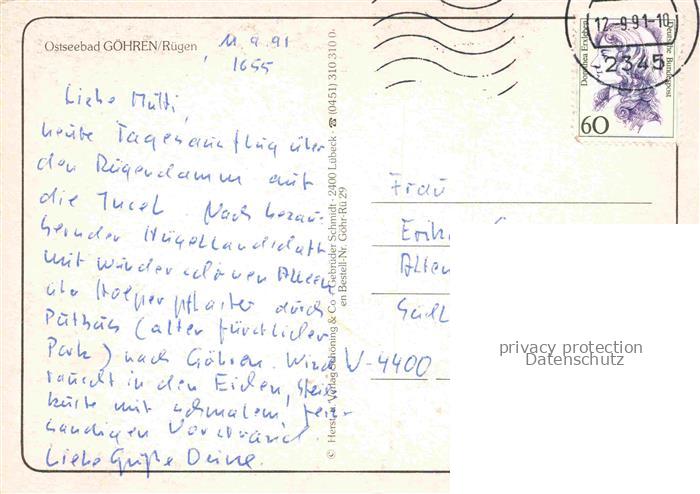 Ostseebad GÖHREN/Rügen
11.9.91
1655
Liebe Mutti,
heute Tagesausflug über
den Rügendamm auf
die Insel. Nach bezau-
bernder Hügellandschaft
mit wunderschönen Alleen
über Holperpflaster durch
Putbus (alter fürstlicher
Park) nach Göhren. Wind
rauscht in den Eichen, Steil-
küste mit schmalem, fein-
sandigen Vorstrand.
Liebe Grüße Deine.
Herst. u. Verlag Schöning & Co + Gebrüder Schmidt · 2400 Lübeck · ☎ (0451) 310 310 0
en Bestell-Nr. Göhr-Rü 29
Frau
Erik
Alten
W-4400
12.-9.91-10
-2345
Dorothea Erxleben
Deutsche Bundespost
60
privacy protection
Datenschutz